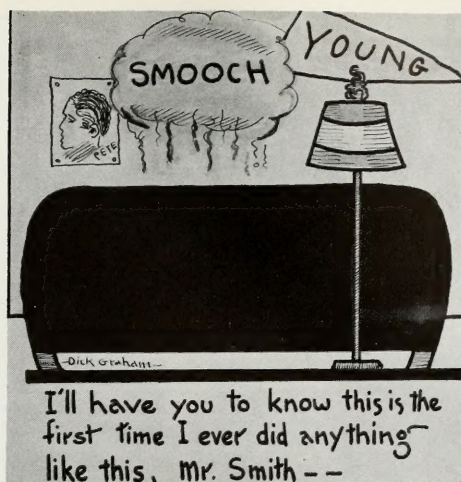 YOUNG
SMOOCH
PETE
-Dick Graham-
I'll have you to know this is the
first time I ever did anything
like this, Mr. Smith --